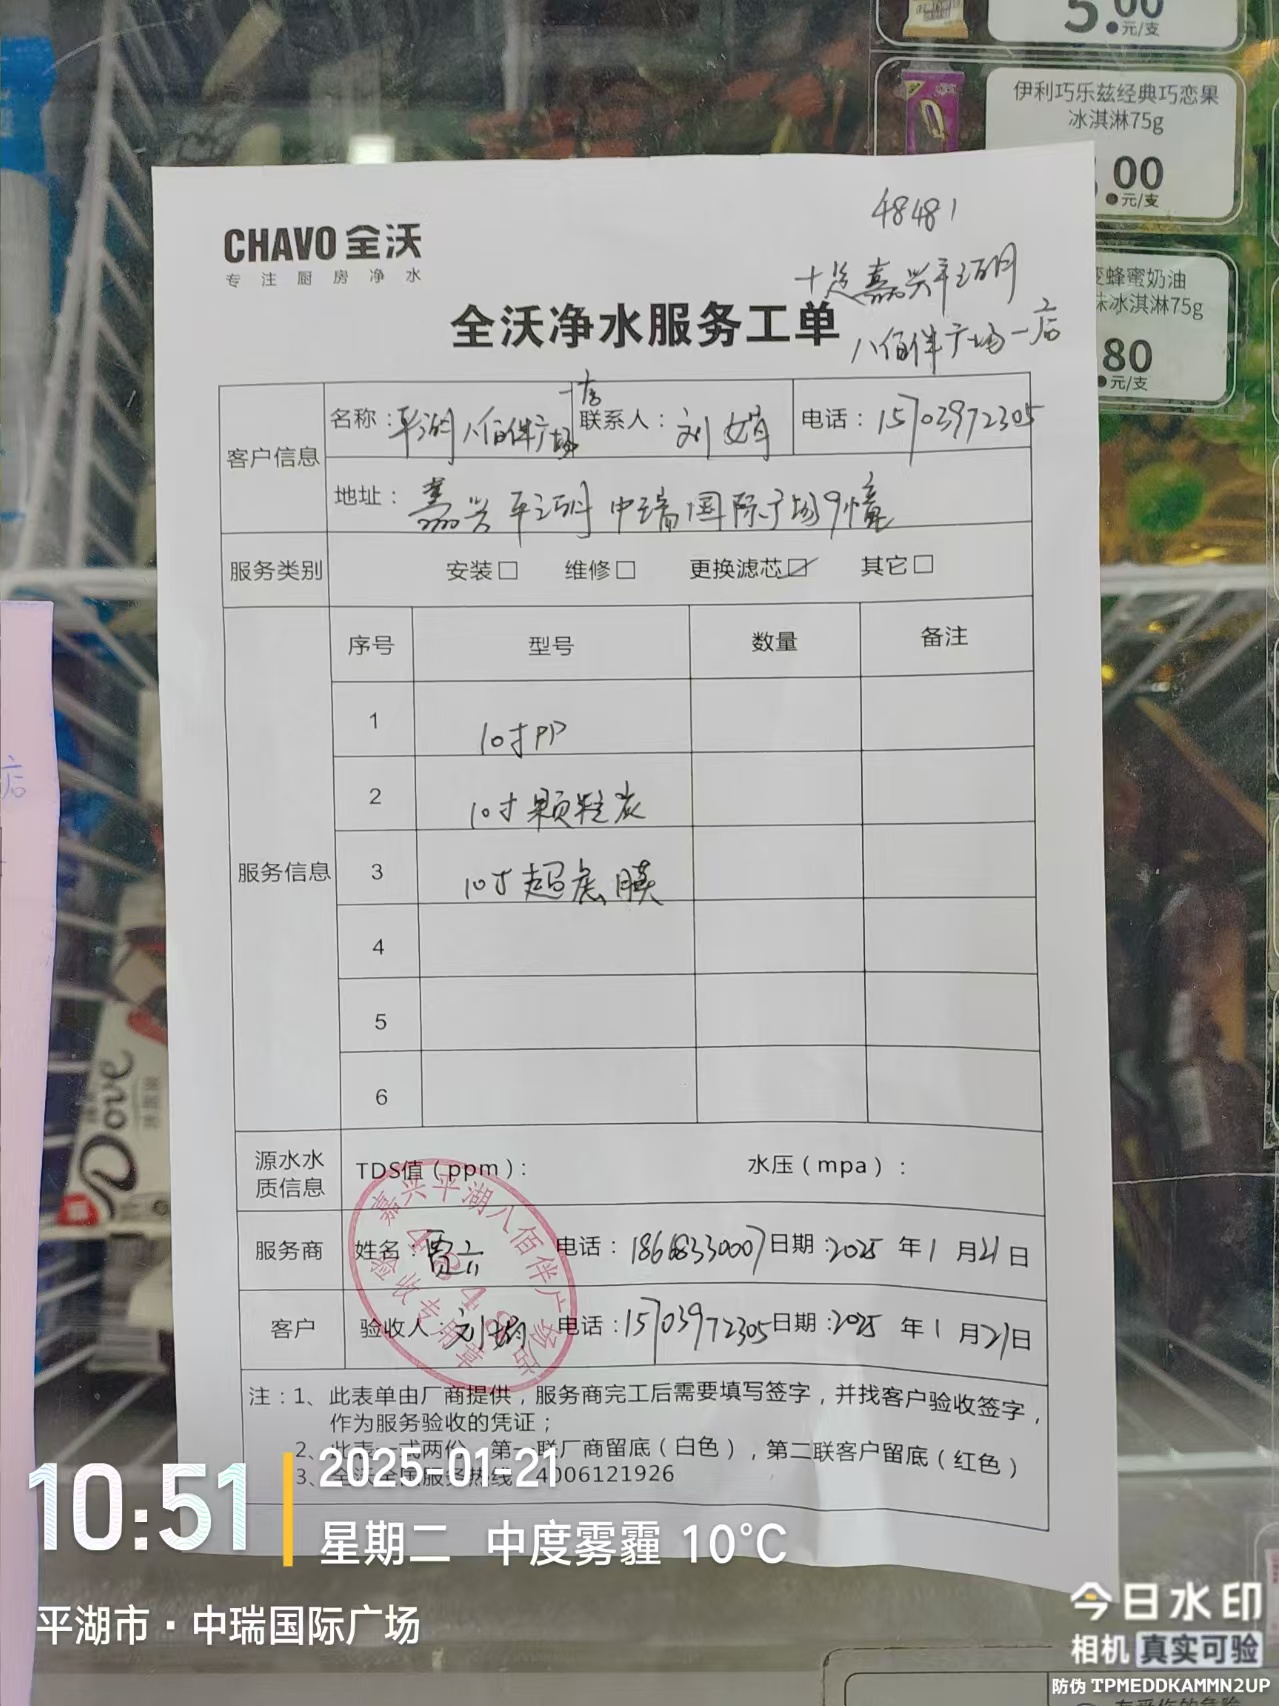 5.00
元/支
伊利巧乐兹经典巧恋果
冰淇淋75g
.00
元/支
变蜂蜜奶油
味冰淇淋75g
.80
元/支
48481
十足嘉兴平湖
八佰伴广场一店
CHAVO 全沃
专注厨房净水
全沃净水服务工单
客户信息
名称：平湖八佰伴广场一店 联系人：刘 电话：15703972305
地址：嘉兴平湖中瑞国际广场9幢
服务类别 安装□ 维修□ 更换滤芯☑ 其它□
服务信息
序号 型号 数量 备注
1 10寸PP
2 10寸颗粒炭
3 10寸超滤膜
4
5
6
源水水
质信息
TDS值（ppm）： 水压（mpa）：
服务商 姓名： 电话：18668330007 日期：2025 年 1 月 21 日
客户 验收人：刘 电话：15703972305 日期：2025 年 1 月 21 日
嘉兴平湖八佰伴广场一店
48481
验收专用章
注：1、此表单由厂商提供，服务商完工后需要填写签字，并找客户验收签字，
作为服务验收的凭证；
2、此表一式两份，第一联厂商留底（白色），第二联客户留底（红色）
3、全沃全国服务热线：4006121926
店
Dove
10:51
2025-01-21
星期二 中度雾霾 10°C
平湖市·中瑞国际广场
今日水印
相机 真实可验
防伪 TPMEDDKAMMN2UP